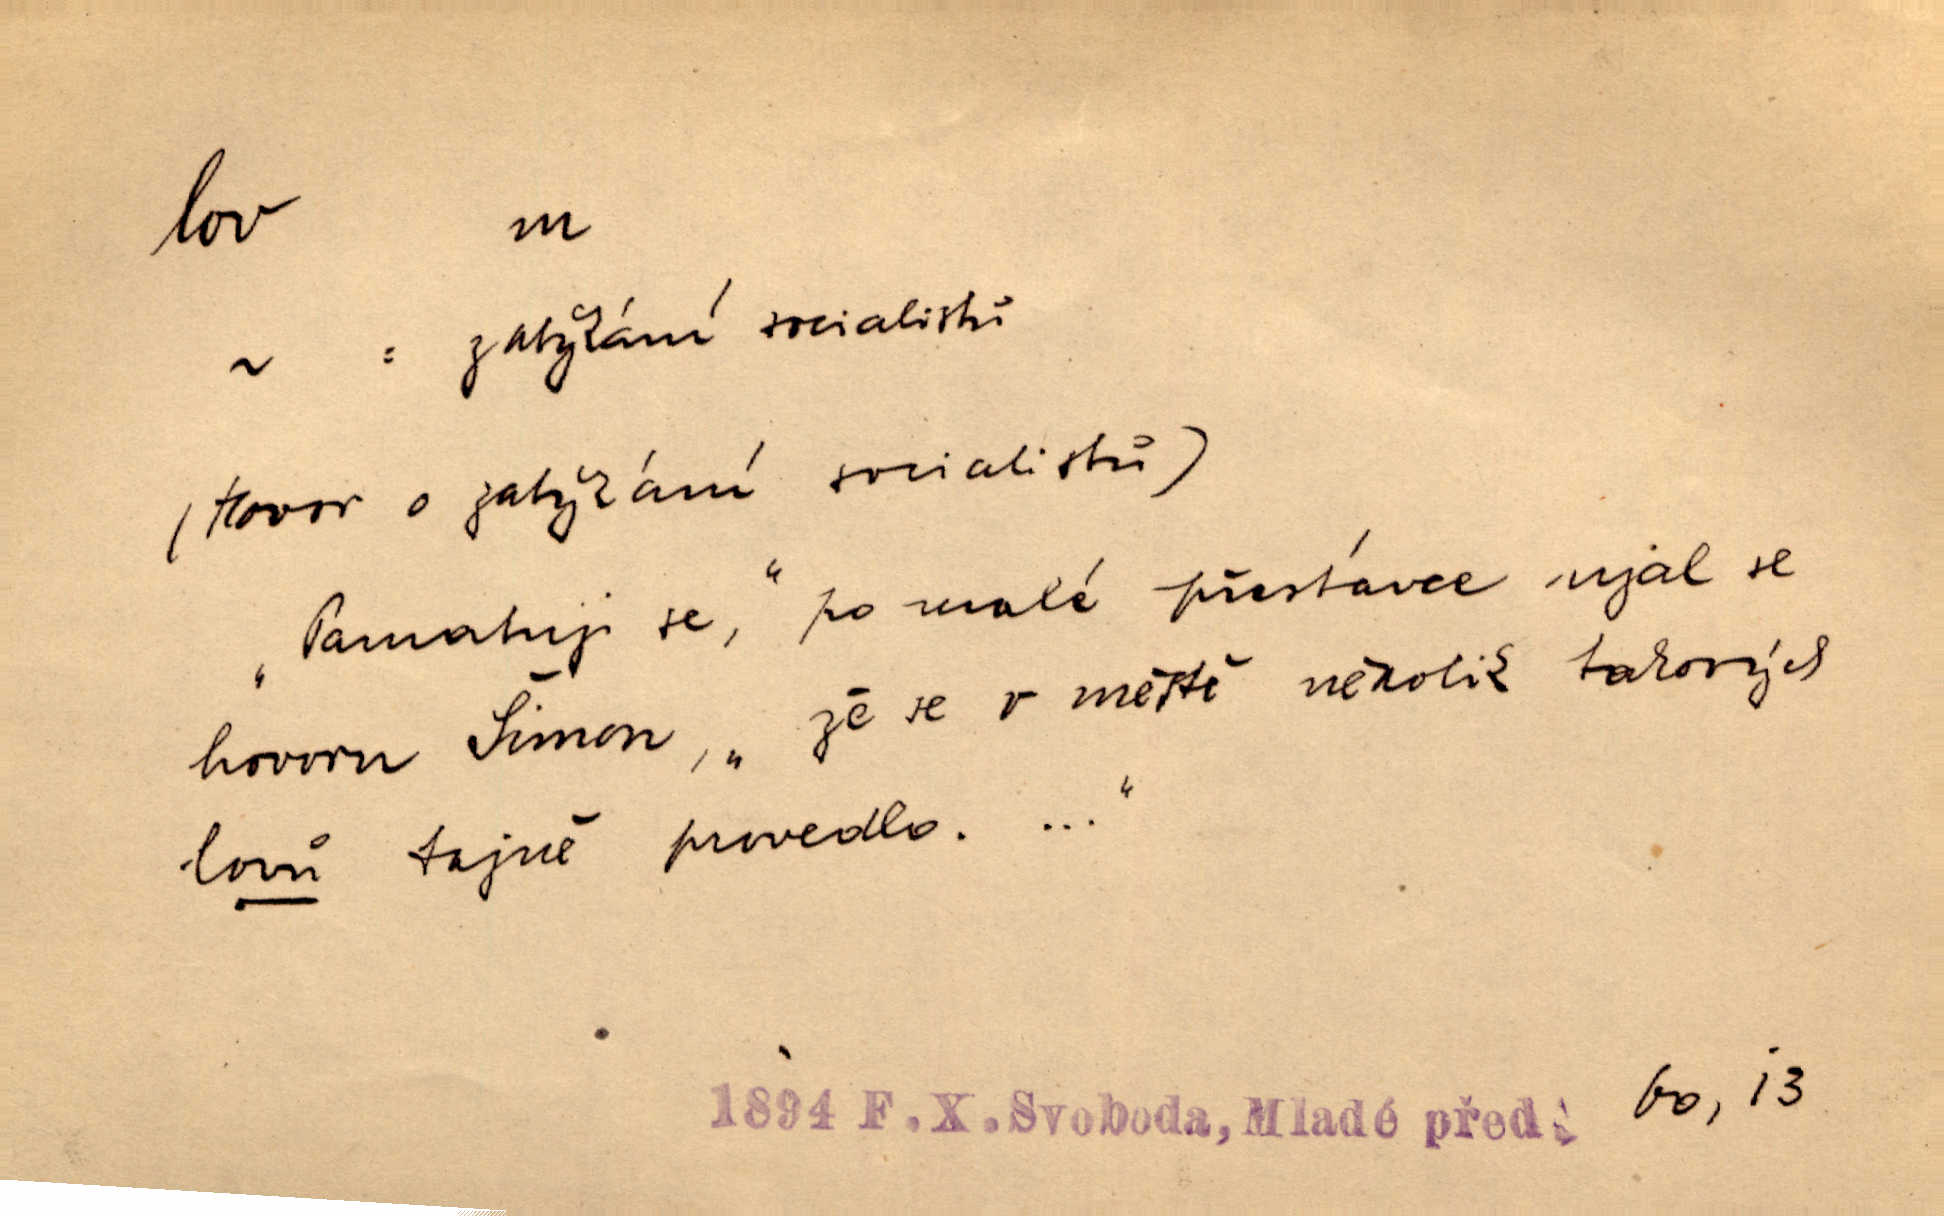 lov m
~ : zatýkání socialistů
(Hovor o zatýkání socialistů)
„Pamatuji se,“ po malé přestávce ujal se
hovoru Šimon, „že se v městě několik takových
lovů tajně provedlo. ...“
1894 F.X.Svoboda, Mladé před. 60, 13